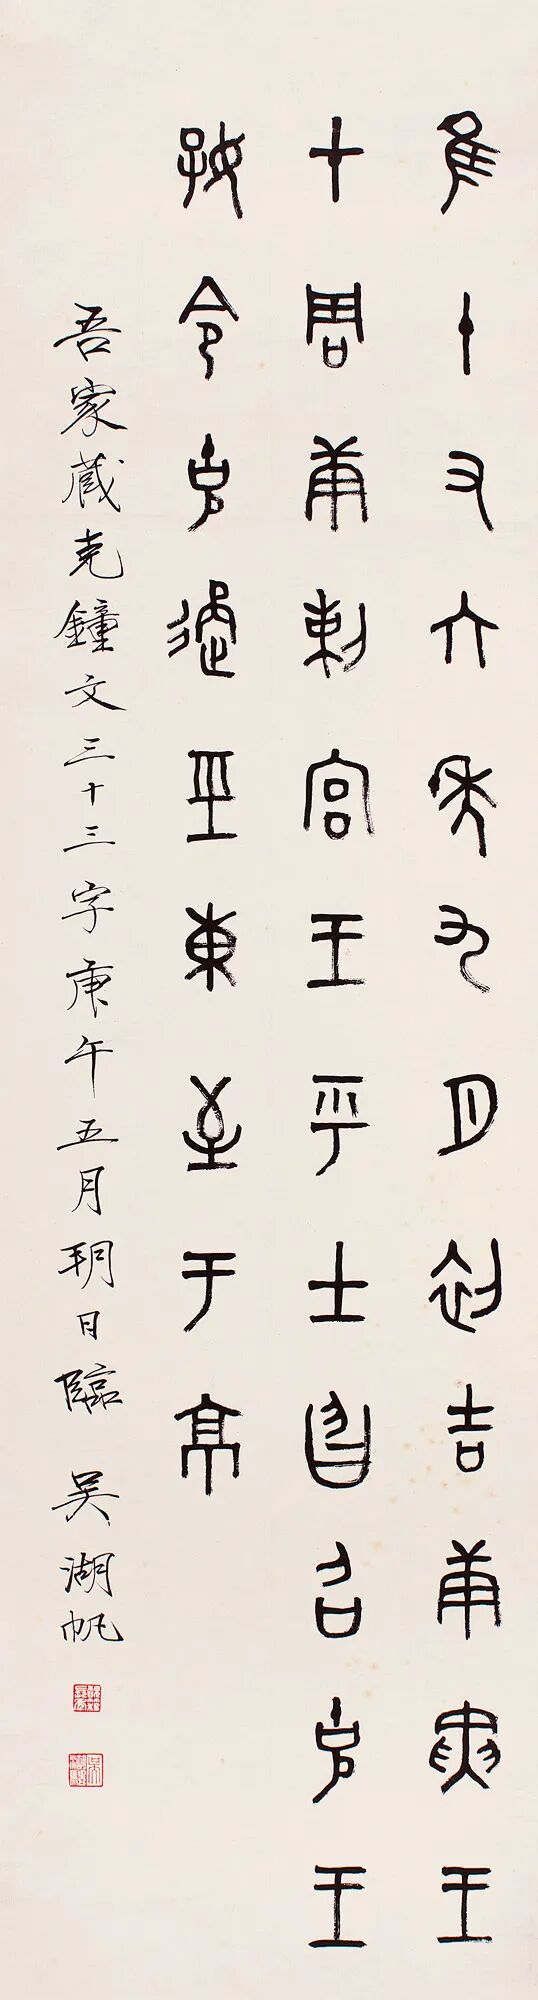 隹十又六年九月初吉庚寅王
才周康剌宮王乎士曶召克王
親令克遹巠東至于京
吾家藏克鐘文三十三字庚午五月朔日臨 吳湖帆